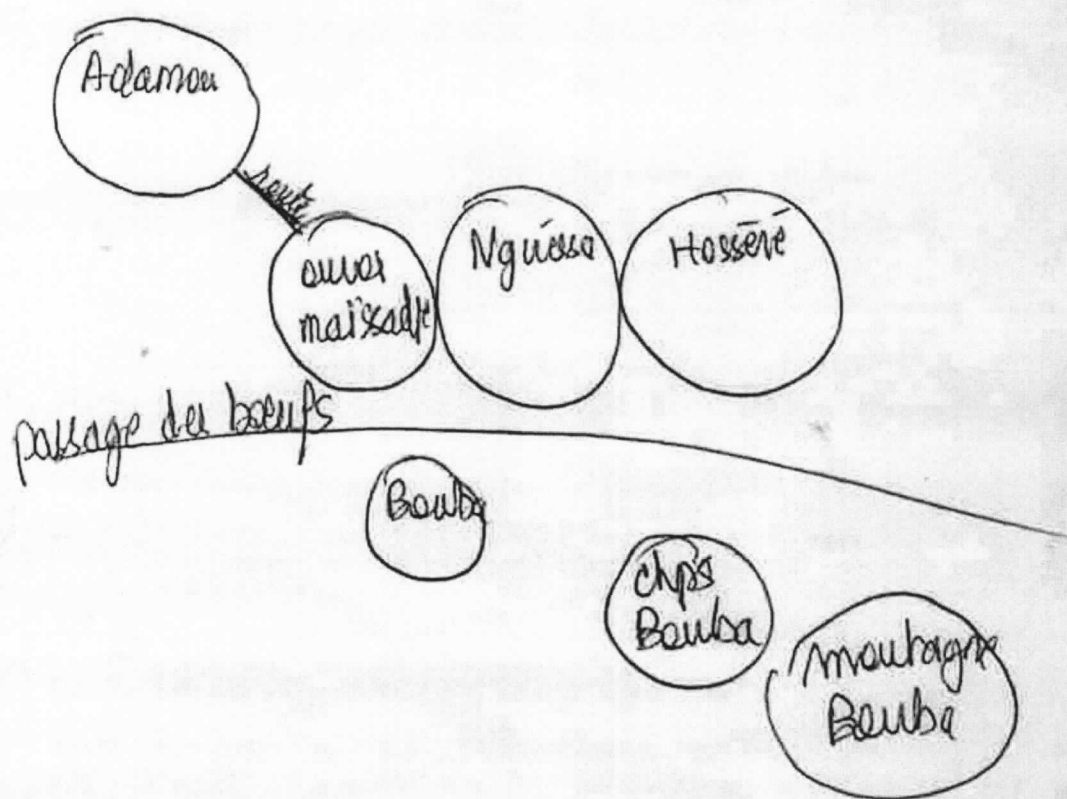 Adamou
route
oumar
maïssadje
Nguessa
Hosséré
passage des boeufs
Bouba
chps
Bouba
montagne
Bouba